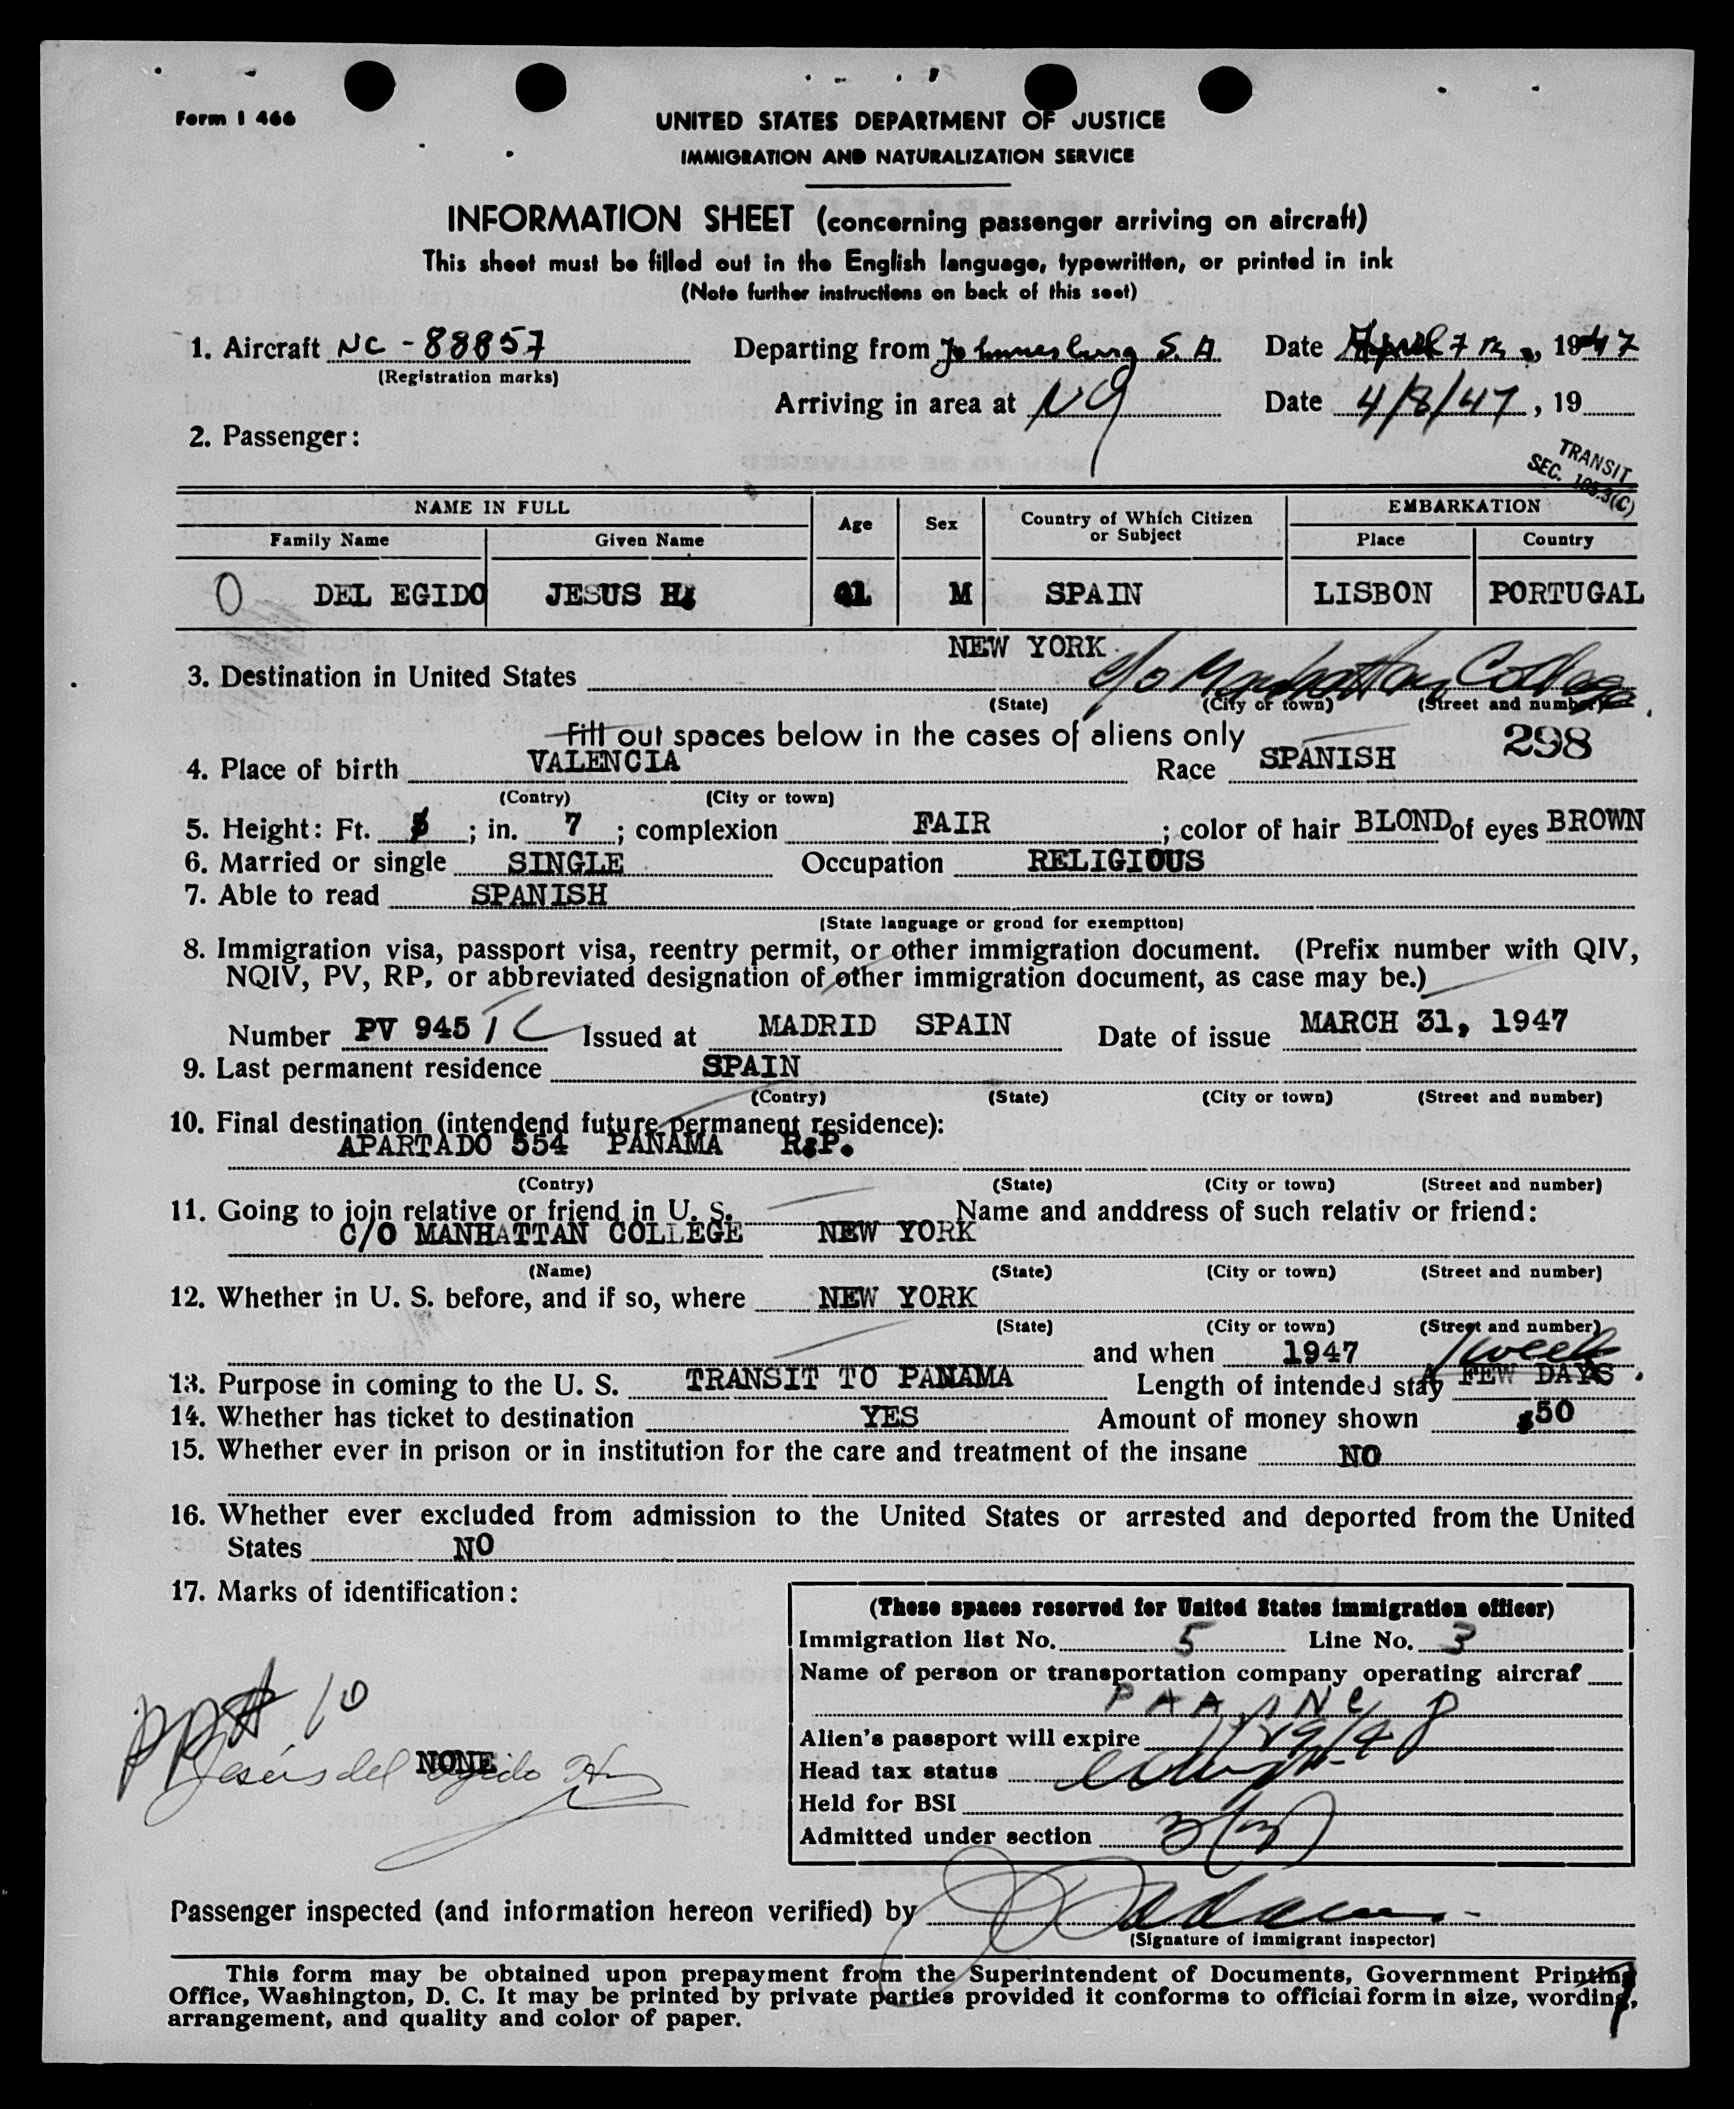 Form I 466
UNITED STATES DEPARTMENT OF JUSTICE
IMMIGRATION AND NATURALIZATION SERVICE
INFORMATION SHEET (concerning passenger arriving on aircraft)
This sheet must be filled out in the English language, typewritten, or printed in ink
(Note further instructions on back of this seet)
1. Aircraft NC - 88857 Departing from Johannesburg S. A. Date April 7 th, 1947
(Registration marks)
Arriving in area at NY Date 4/8/47, 19
2. Passenger:
TRANSIT
SEC. 105.3(C)
NAME IN FULL Age Sex Country of Which Citizen or Subject EMBARKATION
Family Name Given Name Place Country
DEL EGIDO JESUS H. 41 M SPAIN LISBON PORTUGAL
NEW YORK
3. Destination in United States c/o Manhattan College
(State) (City or town) (Street and number)
Fill out spaces below in the cases of aliens only
298
4. Place of birth VALENCIA Race SPANISH
(Contry) (City or town)
5. Height: Ft. ; in. 7 ; complexion FAIR ; color of hair BLOND of eyes BROWN
6. Married or single SINGLE Occupation RELIGIOUS
7. Able to read SPANISH
(State language or grond for exemptton)
8. Immigration visa, passport visa, reentry permit, or other immigration document. (Prefix number with QIV,
NQIV, PV, RP, or abbreviated designation of other immigration document, as case may be.)
Number PV 945 Issued at MADRID SPAIN Date of issue MARCH 31, 1947
9. Last permanent residence SPAIN
(Contry) (State) (City or town) (Street and number)
10. Final destination (intendend future permanent residence):
APARTADO 554 PANAMA R.P.
(Contry) (State) (City or town) (Street and number)
11. Going to join relative or friend in U. S. Name and anddress of such relativ or friend:
C/O MANHATTAN COLLEGE NEW YORK
(Name) (State) (City or town) (Street and number)
12. Whether in U. S. before, and if so, where NEW YORK
(State) (City or town) (Street and number)
and when 1947 1 week
13. Purpose in coming to the U. S. TRANSIT TO PANAMA Length of intended stay A FEW DAYS.
14. Whether has ticket to destination YES Amount of money shown $50
15. Whether ever in prison or in institution for the care and treatment of the insane NO
16. Whether ever excluded from admission to the United States or arrested and deported from the United
States NO
17. Marks of identification:
(These spaces reserved for United States immigration officer)
Immigration list No. 5 Line No. 3
Name of person or transportation company operating aircraf
PAA, INC
Alien's passport will expire 1/29/48
Head tax status
Held for BSI
Admitted under section 3(3)
PP# 10
NONE
Jesús del Egido
Passenger inspected (and information hereon verified) by
(Signature of immigrant inspector)
This form may be obtained upon prepayment from the Superintendent of Documents, Government Printing
Office, Washington, D. C. It may be printed by private parties provided it conforms to official form in size, wording,
arrangement, and quality and color of paper.